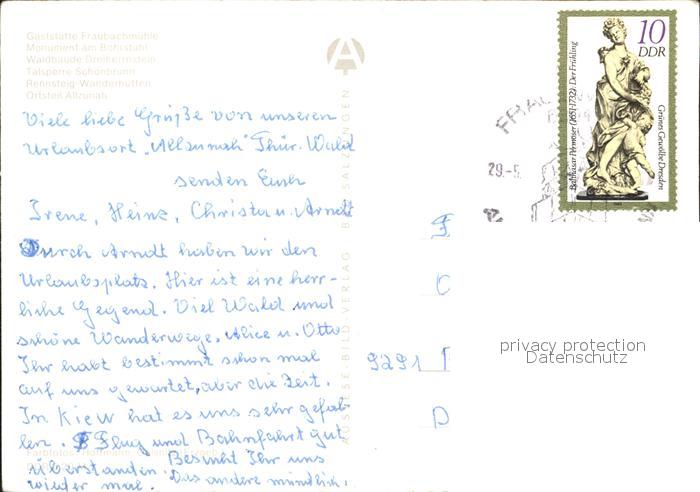 Gaststätte Fraubachmühle
Monument am Bohrstuhl
Waldbaude Dreiherrnstein
Talsperre Schönbrunn
Rennsteig-Wanderhütten
Ortsteil Allzunah
Viele liebe Grüße von unseren
Urlaubsort "Allzunah" Thür. Wald
senden Euch
Irene, Heinz, Christa u. Arndt
Durch Arndt haben wir den
Urlaubsplatz. Hier ist eine herr-
liche Gegend. Viel Wald und
schöne Wanderwege. Alice u. Otto
Ihr habt bestimmt schon mal
auf uns gewartet, aber die Zeit.
In Kiew hat es uns sehr gefal-
len. Flug und Bahnfahrt gut
überstanden. Besucht Ihr uns
wieder mal. Das andere mündlich.
BILD VERLAG BAD SALZUNGEN
10
DDR
Balthasar Permoser (1651-1732): Der Frühling
Grünes Gewölbe Dresden
29.-5.
9291
privacy protection
Datenschutz